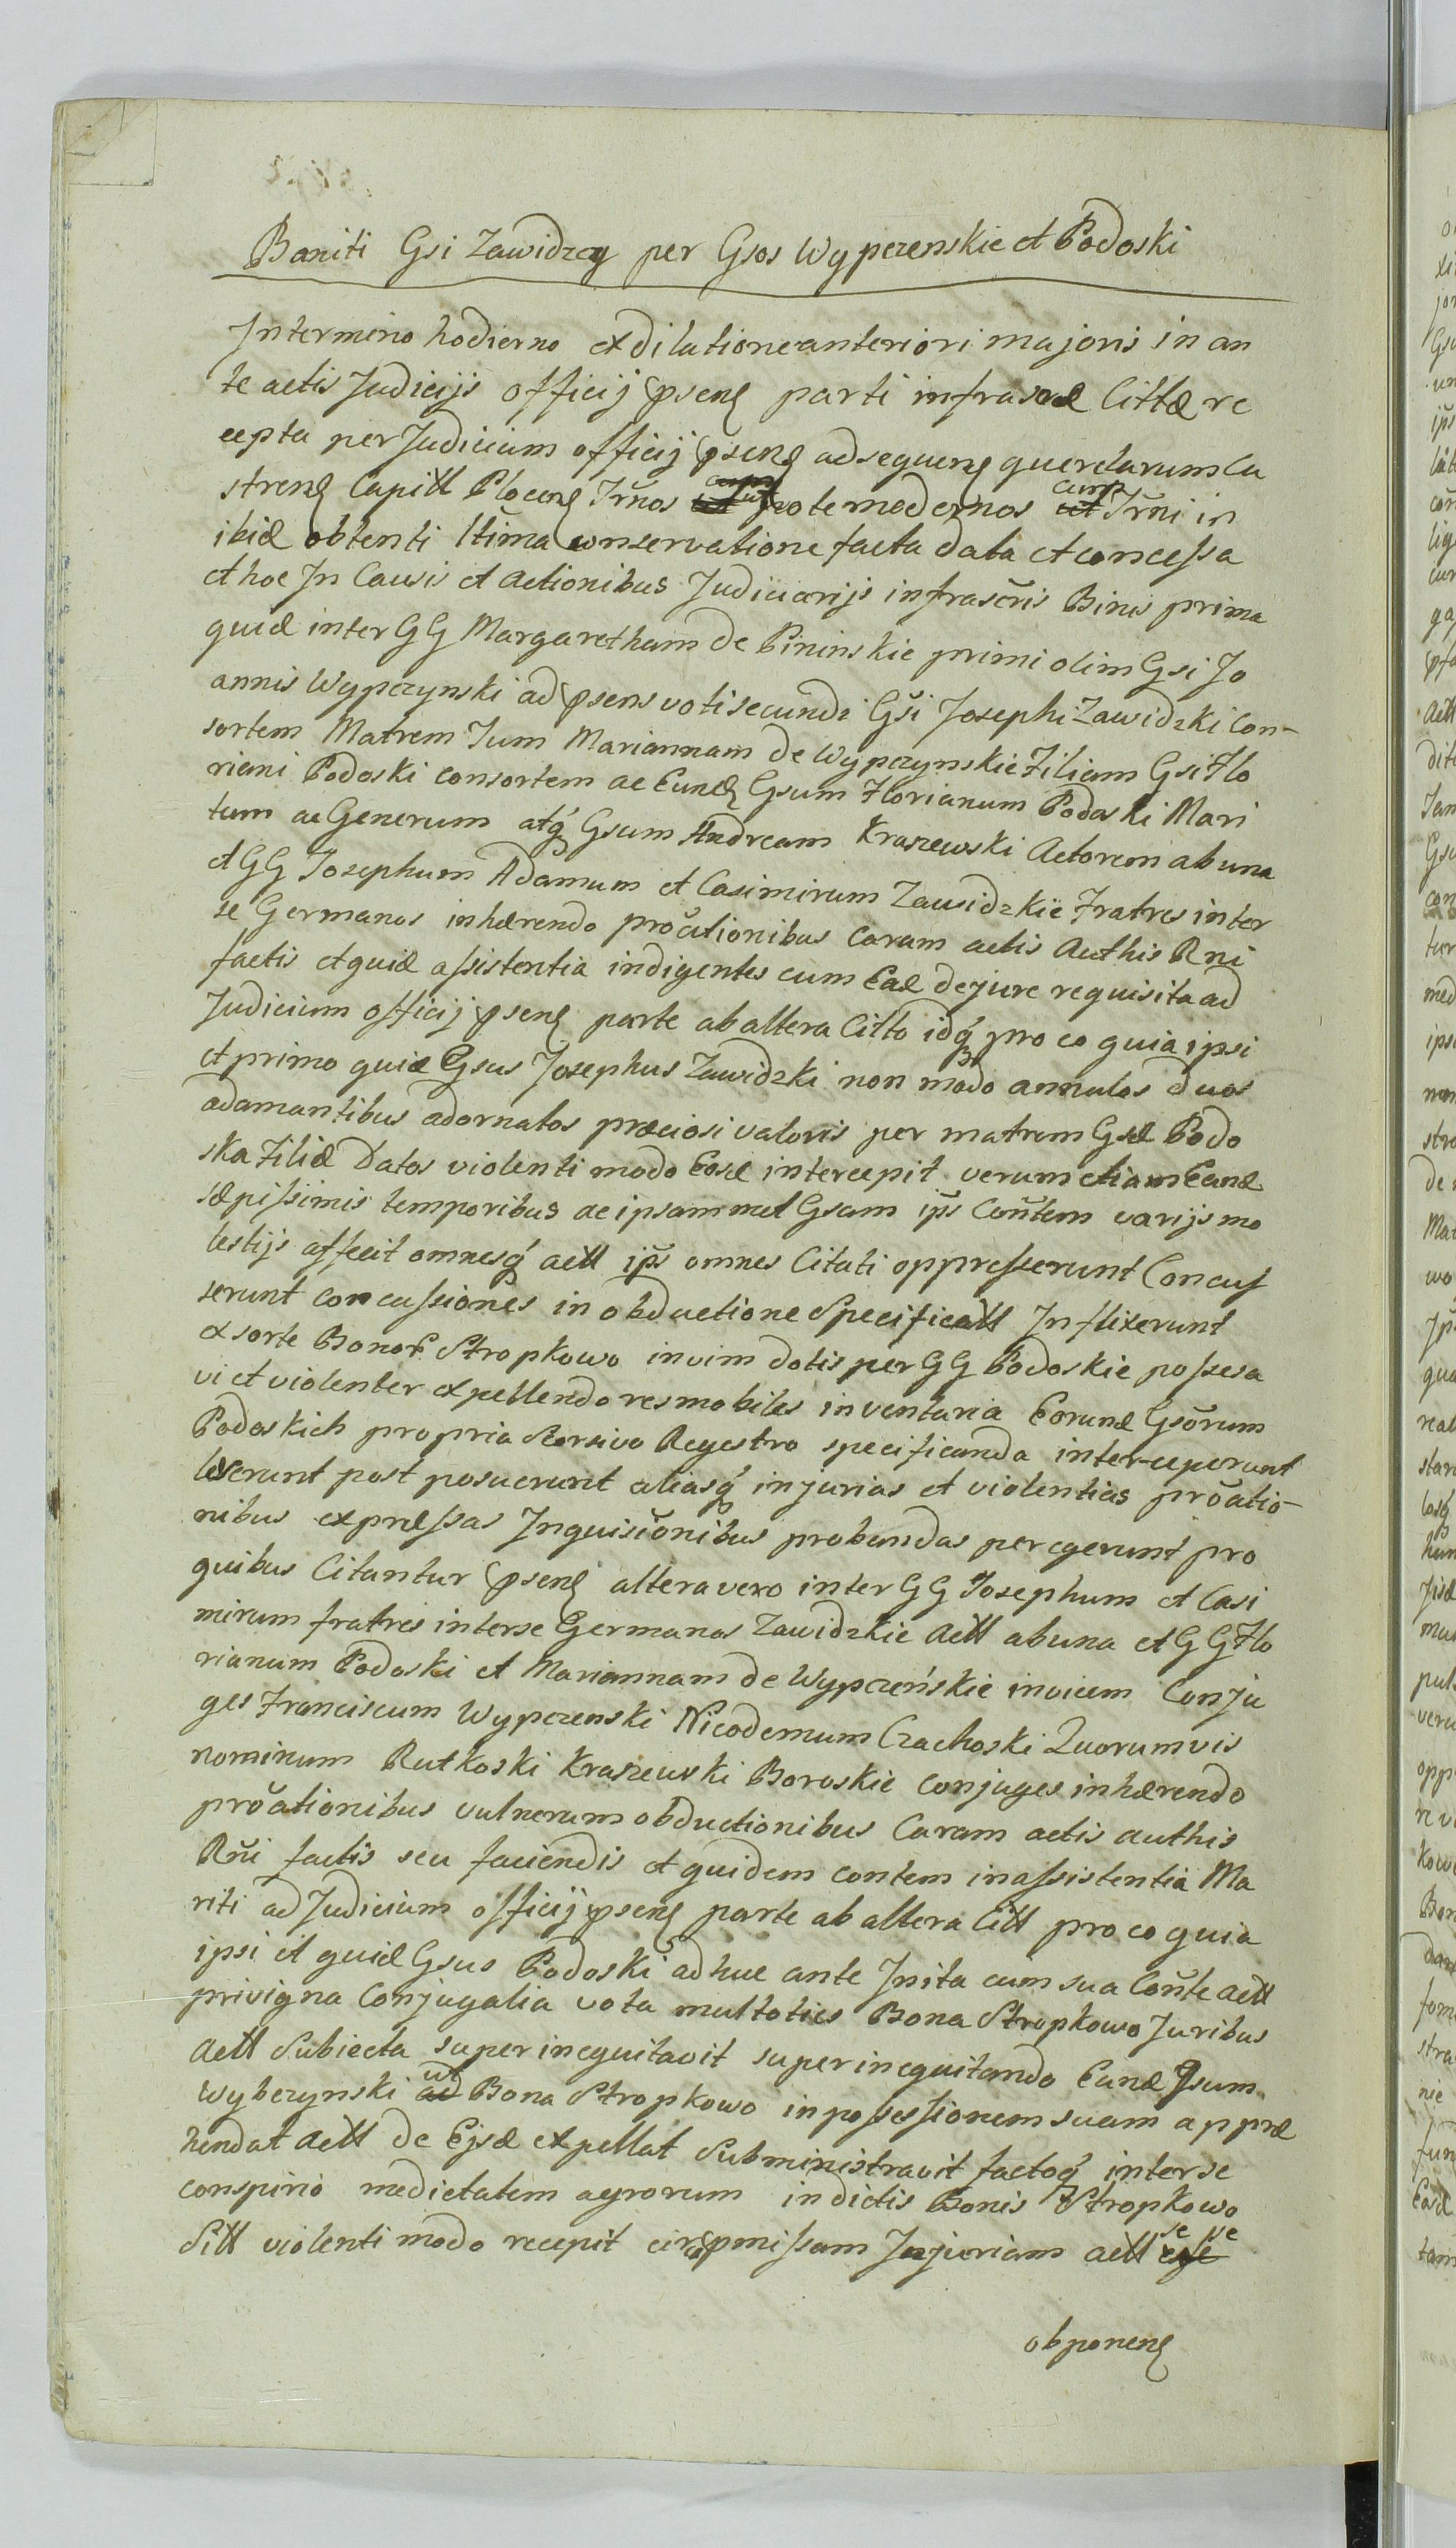 Baniti Gsi Zawidzcy per Gsos Wypczenskie et Podoski
In termino hodierno ex dilatione anteriori majoris in an
te actis Judicijs officij pseng parti infrascrae Cittae re
cepta per Judicium officij pseng ad sequeng querelarum Ca
streng Capitt Ploceng Trnos prote modernos cum Trni in
ibid obtenti ltima conservatione facta data et concessa
et hoc In Causis et Actionibus Judiciarijs infrascris Binis prima
quid inter GG Margaretham de Pininskie primi olim Gsi Jo
annis Wypczynski ad psens voti secundi Gsi Josephi Zawidzki Con-
sortem Matrem Tum Mariannam de Wypczynskie Filiam Gsi Flo
riani Podoski consortem ac Eundg Gsum Florianum Podoski Mari
tum ac Generum atq Gsum Andream Kraszewski Actorem ab una
et GG Josephum Adamum et Casimirum Zawidzkie Fratres inter
se Germanos inhaerendo procationibus coram actis Authis Rni
factis et quid assistentia indigentes cum Ead de jure requisita ad
Judicium officij pseng parte ab altera Citto idq pro eo quia ipsi
et primo quid Gsus Josephus Zawidzki non modo annulos duos
adamantibus adornatos praeciosi valoris per matrem Gsae Podo
ska Filiae Datos violenti modo Eosd intercepit verum etiam Eand
saepissimis temporibus ac ipsammet Gsam ips Contem varijs mo
lestijs affecit omnesq actt ips omnes Citati oppresserunt Concus
serunt concussiones in obductione Specificatt Inflixerunt
ex sorte Bonor Stropkowo in vim dotis per GG Podoskie possesa
vi et violenter expellendo res mobiles inventaria Eorund Gsorum
Podoskich propria Seorsivo Regestro specificanda interceperunt
laeserunt post posuerunt aliasq injurias et violentias procatio-
nibus expressas Inquisionibus probandas peregerunt pro
quibus Citantur pseng altera vero inter GG Josephum et Casi
mirum fratres inter se Germanos Zawidzkie Actt ab una et GG Flo
rianum Podoski et Mariannam de Wypczeńskie invicem Conju
ges Franciscum Wypczenski Nicodemum Czachoski Quorumvis
nominum Rutkoski Kraszewski Boroskie conjuges inhaerendo
procationibus vulnerum obductionibus Coram actis authis
Rni factis seu faciendis et quidem contem in assistentia Ma
riti ad Judicium officij pseng parte ab altera Citt pro eo quia
ipsi et quid Gsus Podoski adhuc ante Inita cum sua Conte actt
privigna Conjugalia vota multoties Bona Stropkowo Juribus
Actt Subiecta super inequitavit super inequitando Eand Gsum
Wybczynski ad ut Bona Stropkowo in possessionem suam appre
hendat Actt de Ejsd expellat Subministravit factoq inter se
conspirio medietatem agrorum in dictis Bonis Stropkowo
Sitt violenti modo recepit circa pmissam Injuriam actt se se
obponeng